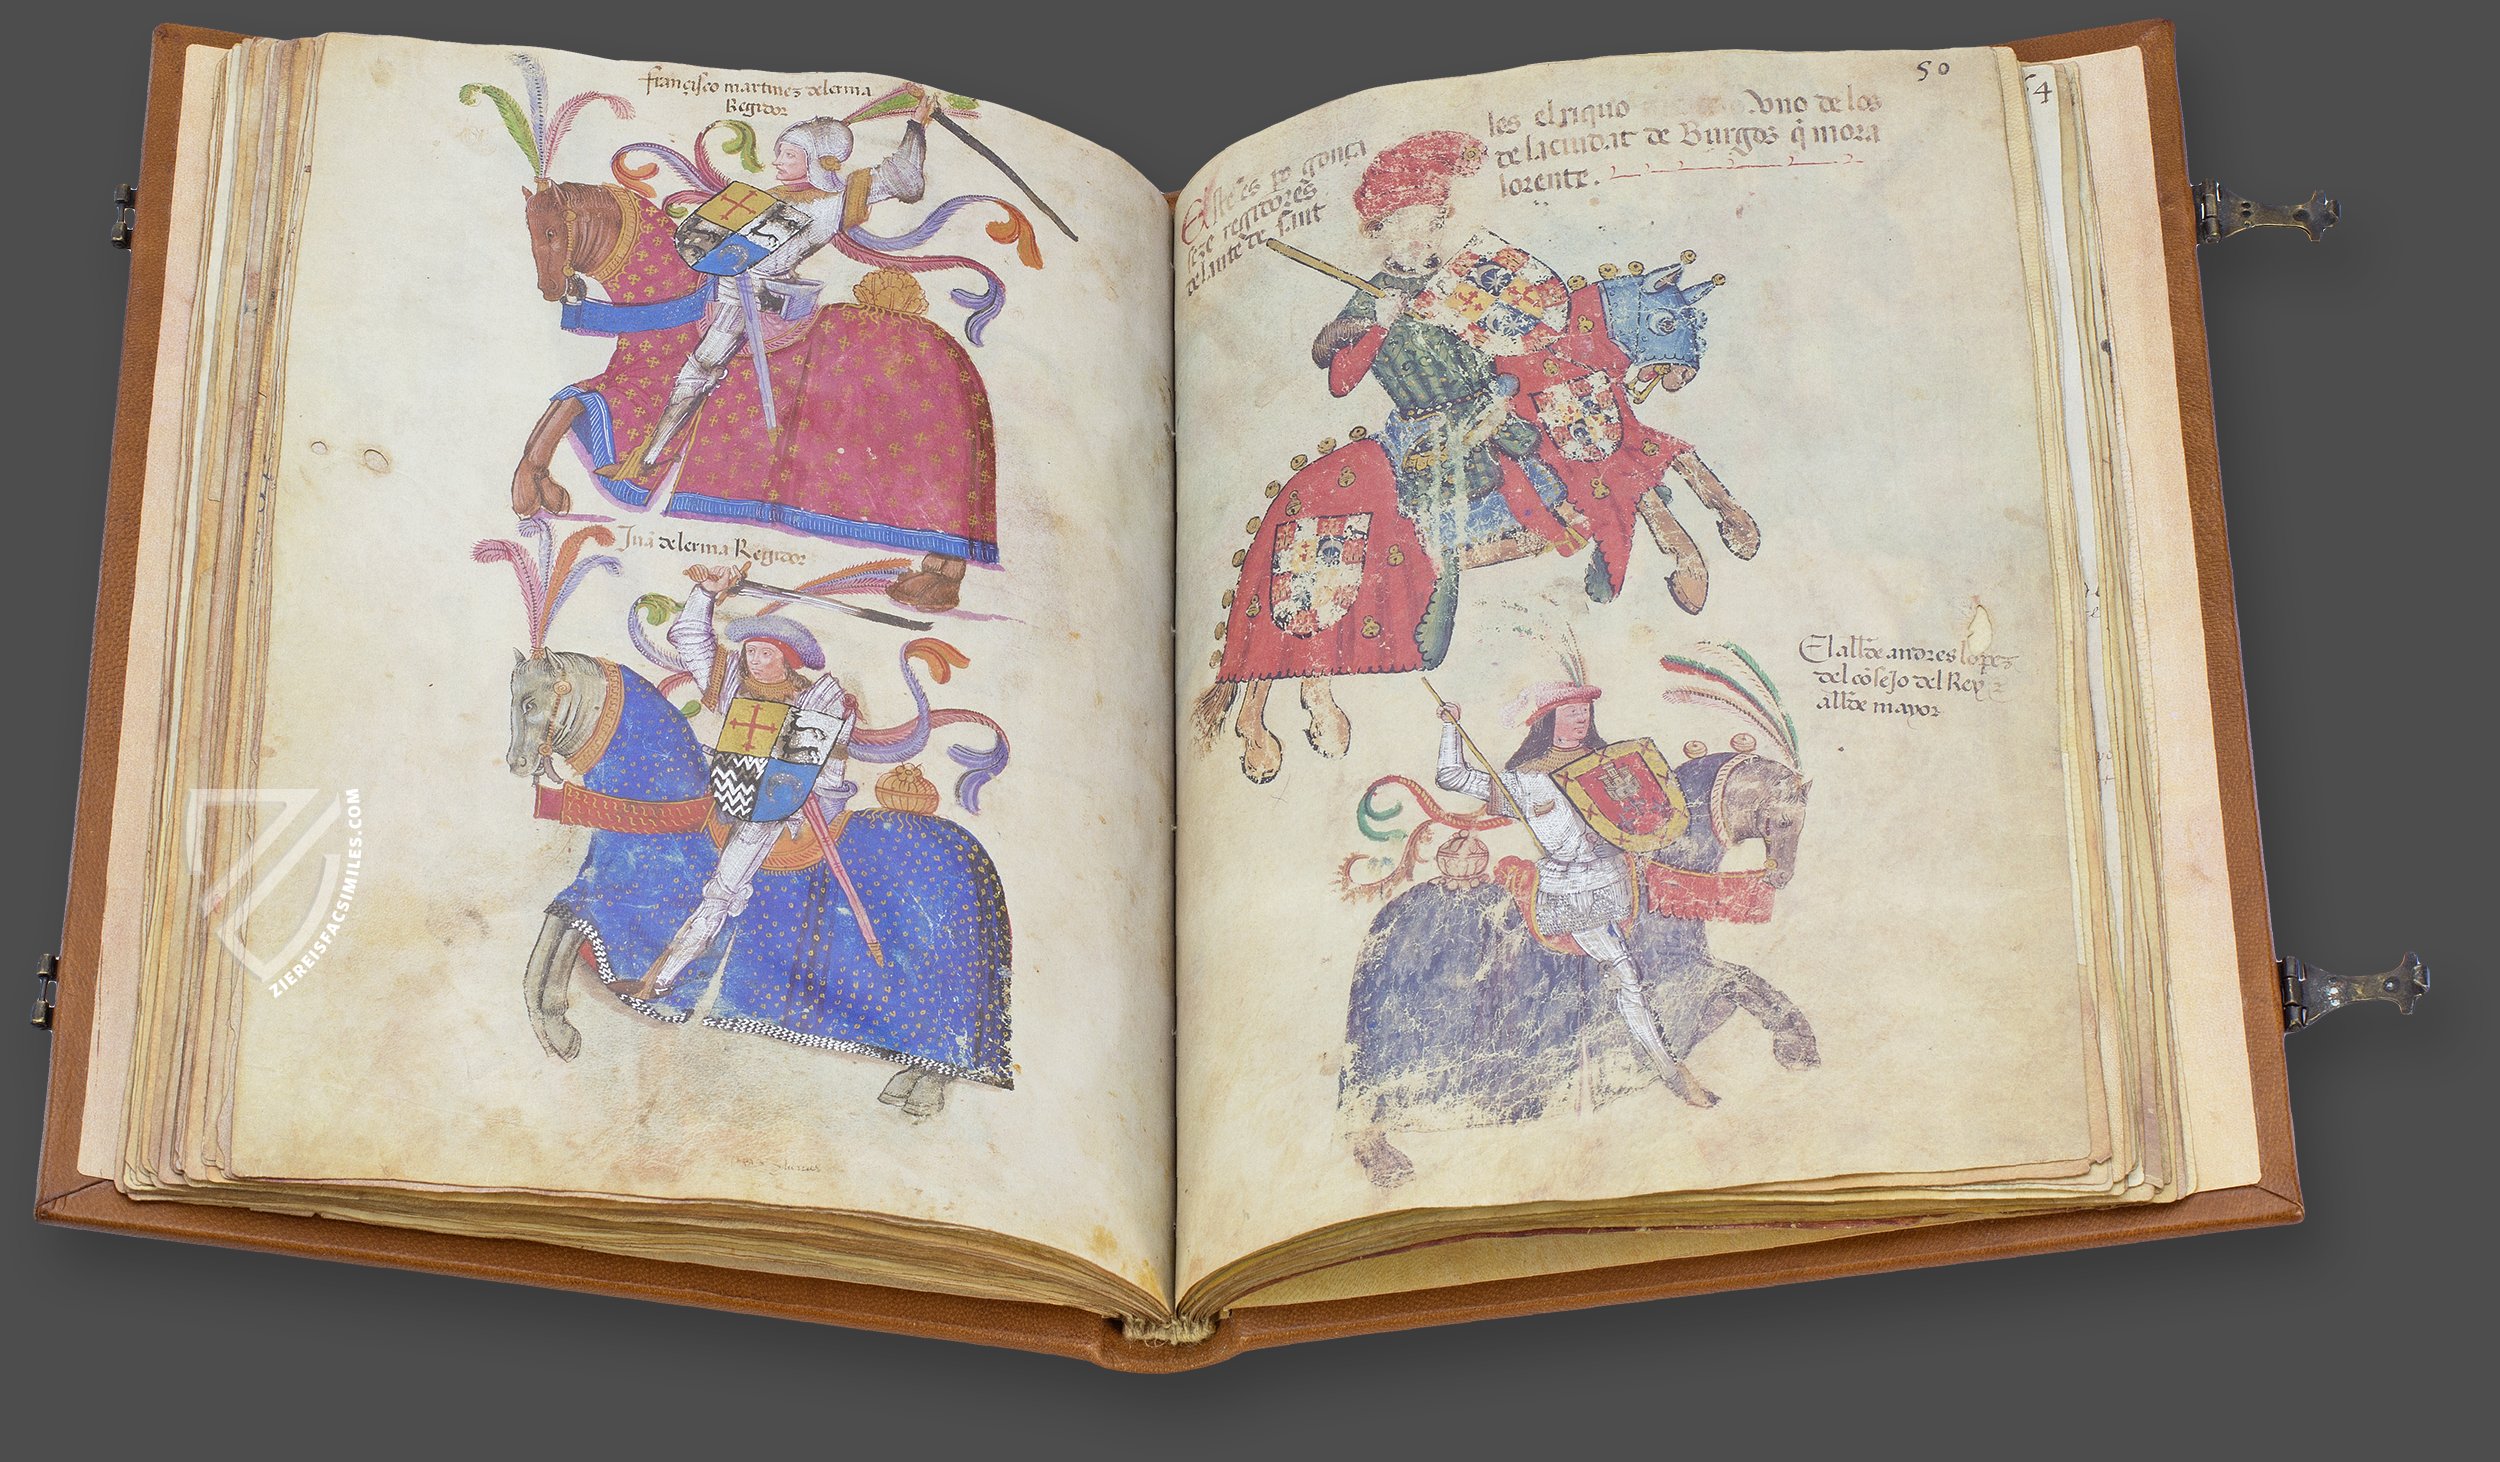 françisco martines delerma
Regidor
Juã delerma Regidor
50
54
Este es po gonça
les el riquo Vno de los
seze regidores
de la ciudat de Burgos q̃ mora
delante de sant
lorente.
El allde andres lopez
del cõsejo del Rey
allde mayor
ZIEREISFACSIMILES.COM